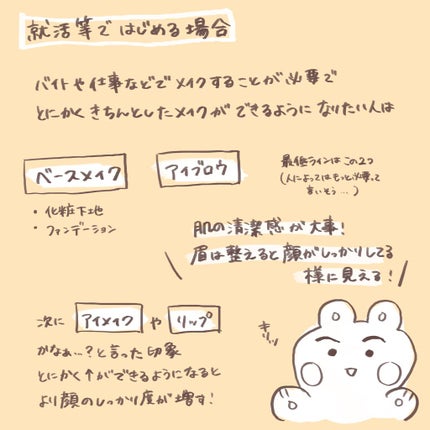 就活等ではじめる場合
バイトや仕事などでメイクすることが必要で
とにかくきちんとしたメイクができるようになりたい人は
ベースメイク
アイブロウ
最低ラインはこの2つ
(人によってはもっと必要って
言いそう…)
・化粧下地
・ファンデーション
肌の清潔感が大事!
眉は整えると顔がしっかりしてる
様に見える!
次にアイメイクやリップ
かなぁ…?と言った印象
とにかく↑ができるようになると
より顔のしっかり度が増す!
キリッ